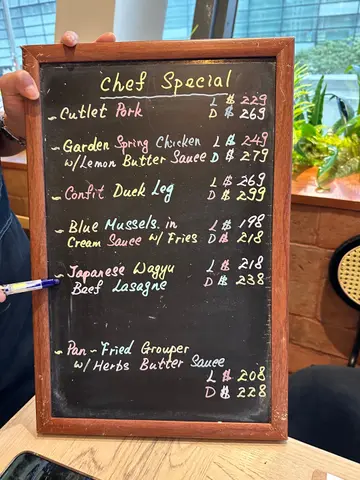 Chef Special
~ Cutlet Pork L $ 229
D $ 269
~ Garden Spring Chicken L $ 249
w/Lemon Butter Sauce D $ 279
L $ 269
~ Confit Duck Leg D $ 299
~ Blue Mussels in L $ 198
Cream Sauce w/ Fries D $ 218
~ Japanese Wagyu L $ 218
Beef Lasagne D $ 238
~ Pan-Fried Grouper
w/Herbs Butter Sauce
L $ 208
D $ 228